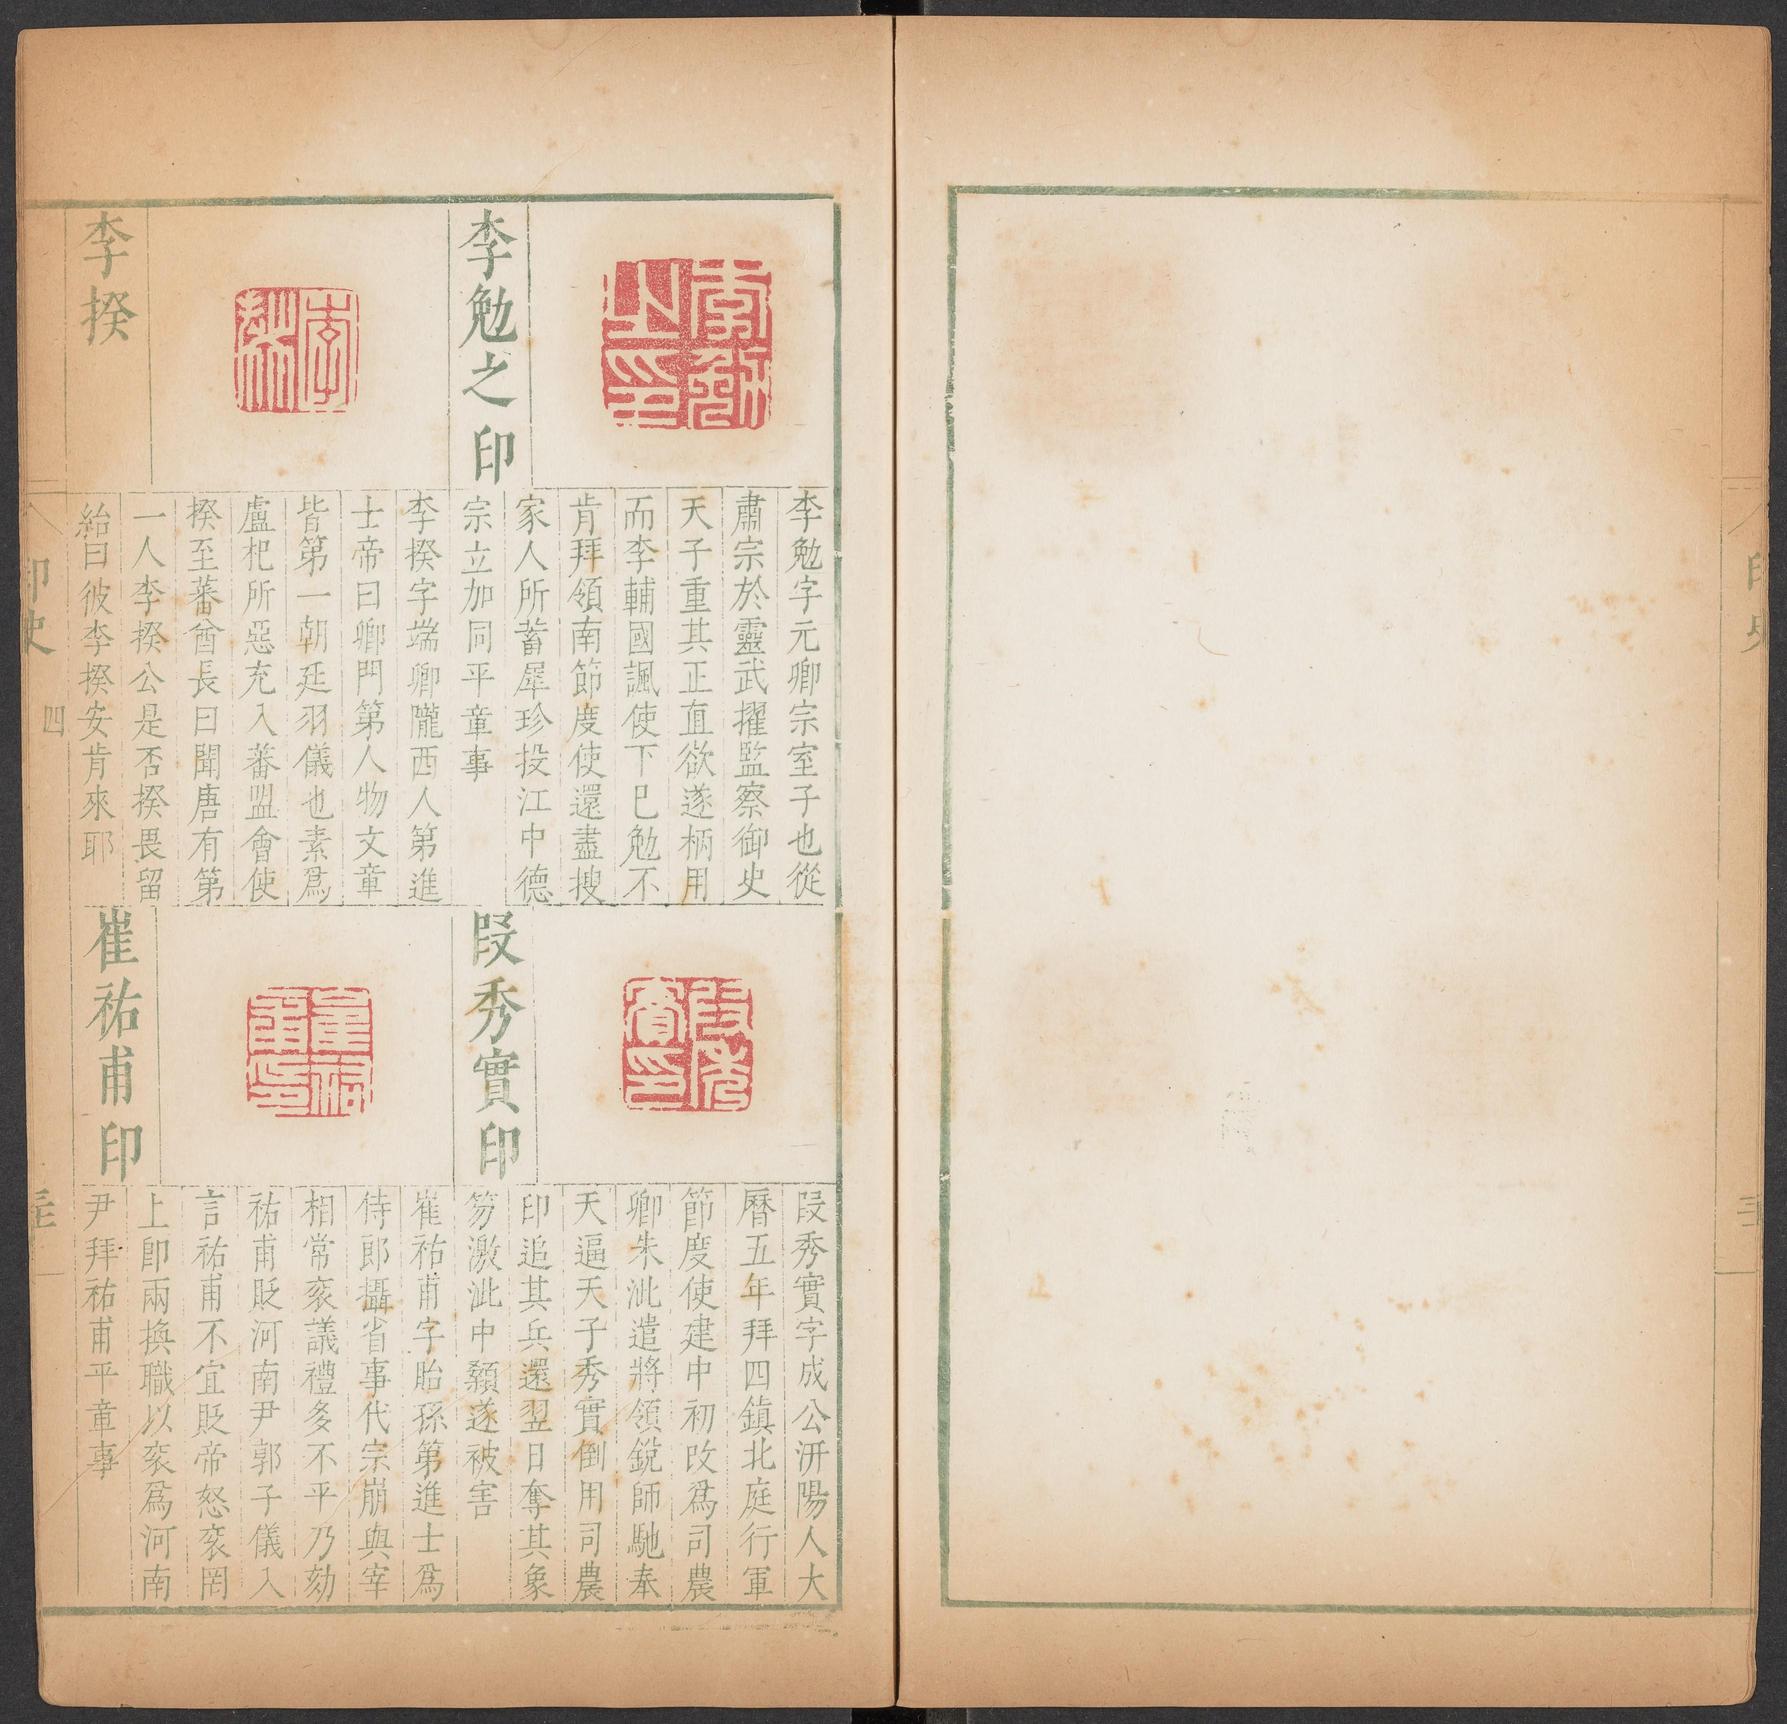 李勉
之印
李勉之印
李勉字元卿宗室子也從
肅宗於靈武擢監察御史
天子重其正直欲遂柄用
而李輔國諷使下巳勉不
肯拜領南節度使還盡搜
家人所蓄犀珍投江中德
宗立加同平章事
李
揆
李揆
李揆字端卿隴西人第進
士帝曰卿門第人物文章
皆第一朝廷羽儀也素爲
盧杞所惡充入蕃盟會使
揆至蕃酋長曰聞唐有第
一人李揆公是否揆畏留
紿曰彼李揆安肯來耶
段秀
實印
段秀實印
段秀實字成公汧陽人大
曆五年拜四鎮北庭行軍
節度使建中初改爲司農
卿朱泚遣將領銳師馳奉
天逼天子秀實倒用司農
印追其兵還翌日奪其象
笏激泚中顙遂被害
崔祐
甫印
崔祐甫印
崔祐甫字胎孫第進士爲
侍郎攝省事代宗崩與宰
相常衮議禮多不平乃劾
祐甫貶河南尹郭子儀入
言祐甫不宜貶帝怒衮罔
上卽兩換職以衮爲河南
尹拜祐甫平章事
印史
四